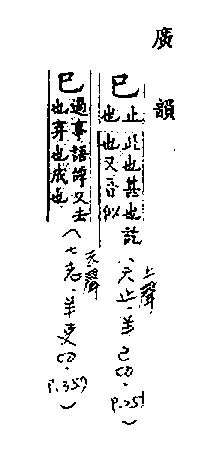 廣韻
巳 止也此也甚也訖也又音似
(上聲、六止、羊己切、P.251)
巳 過事語辭又去也弃也成也
(去聲、七志、羊吏切、P.359)